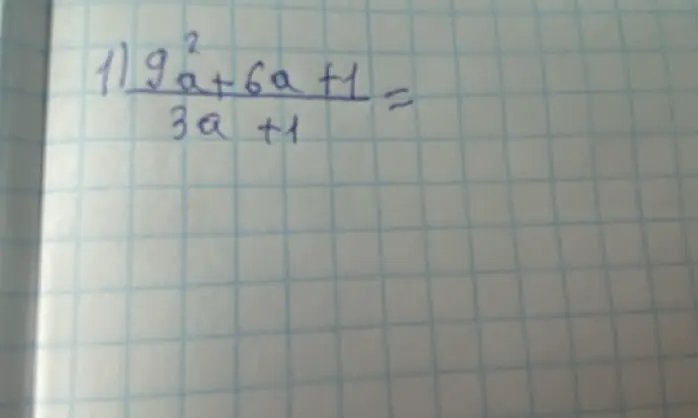 1) 9a²+6a+1
3a+1 =